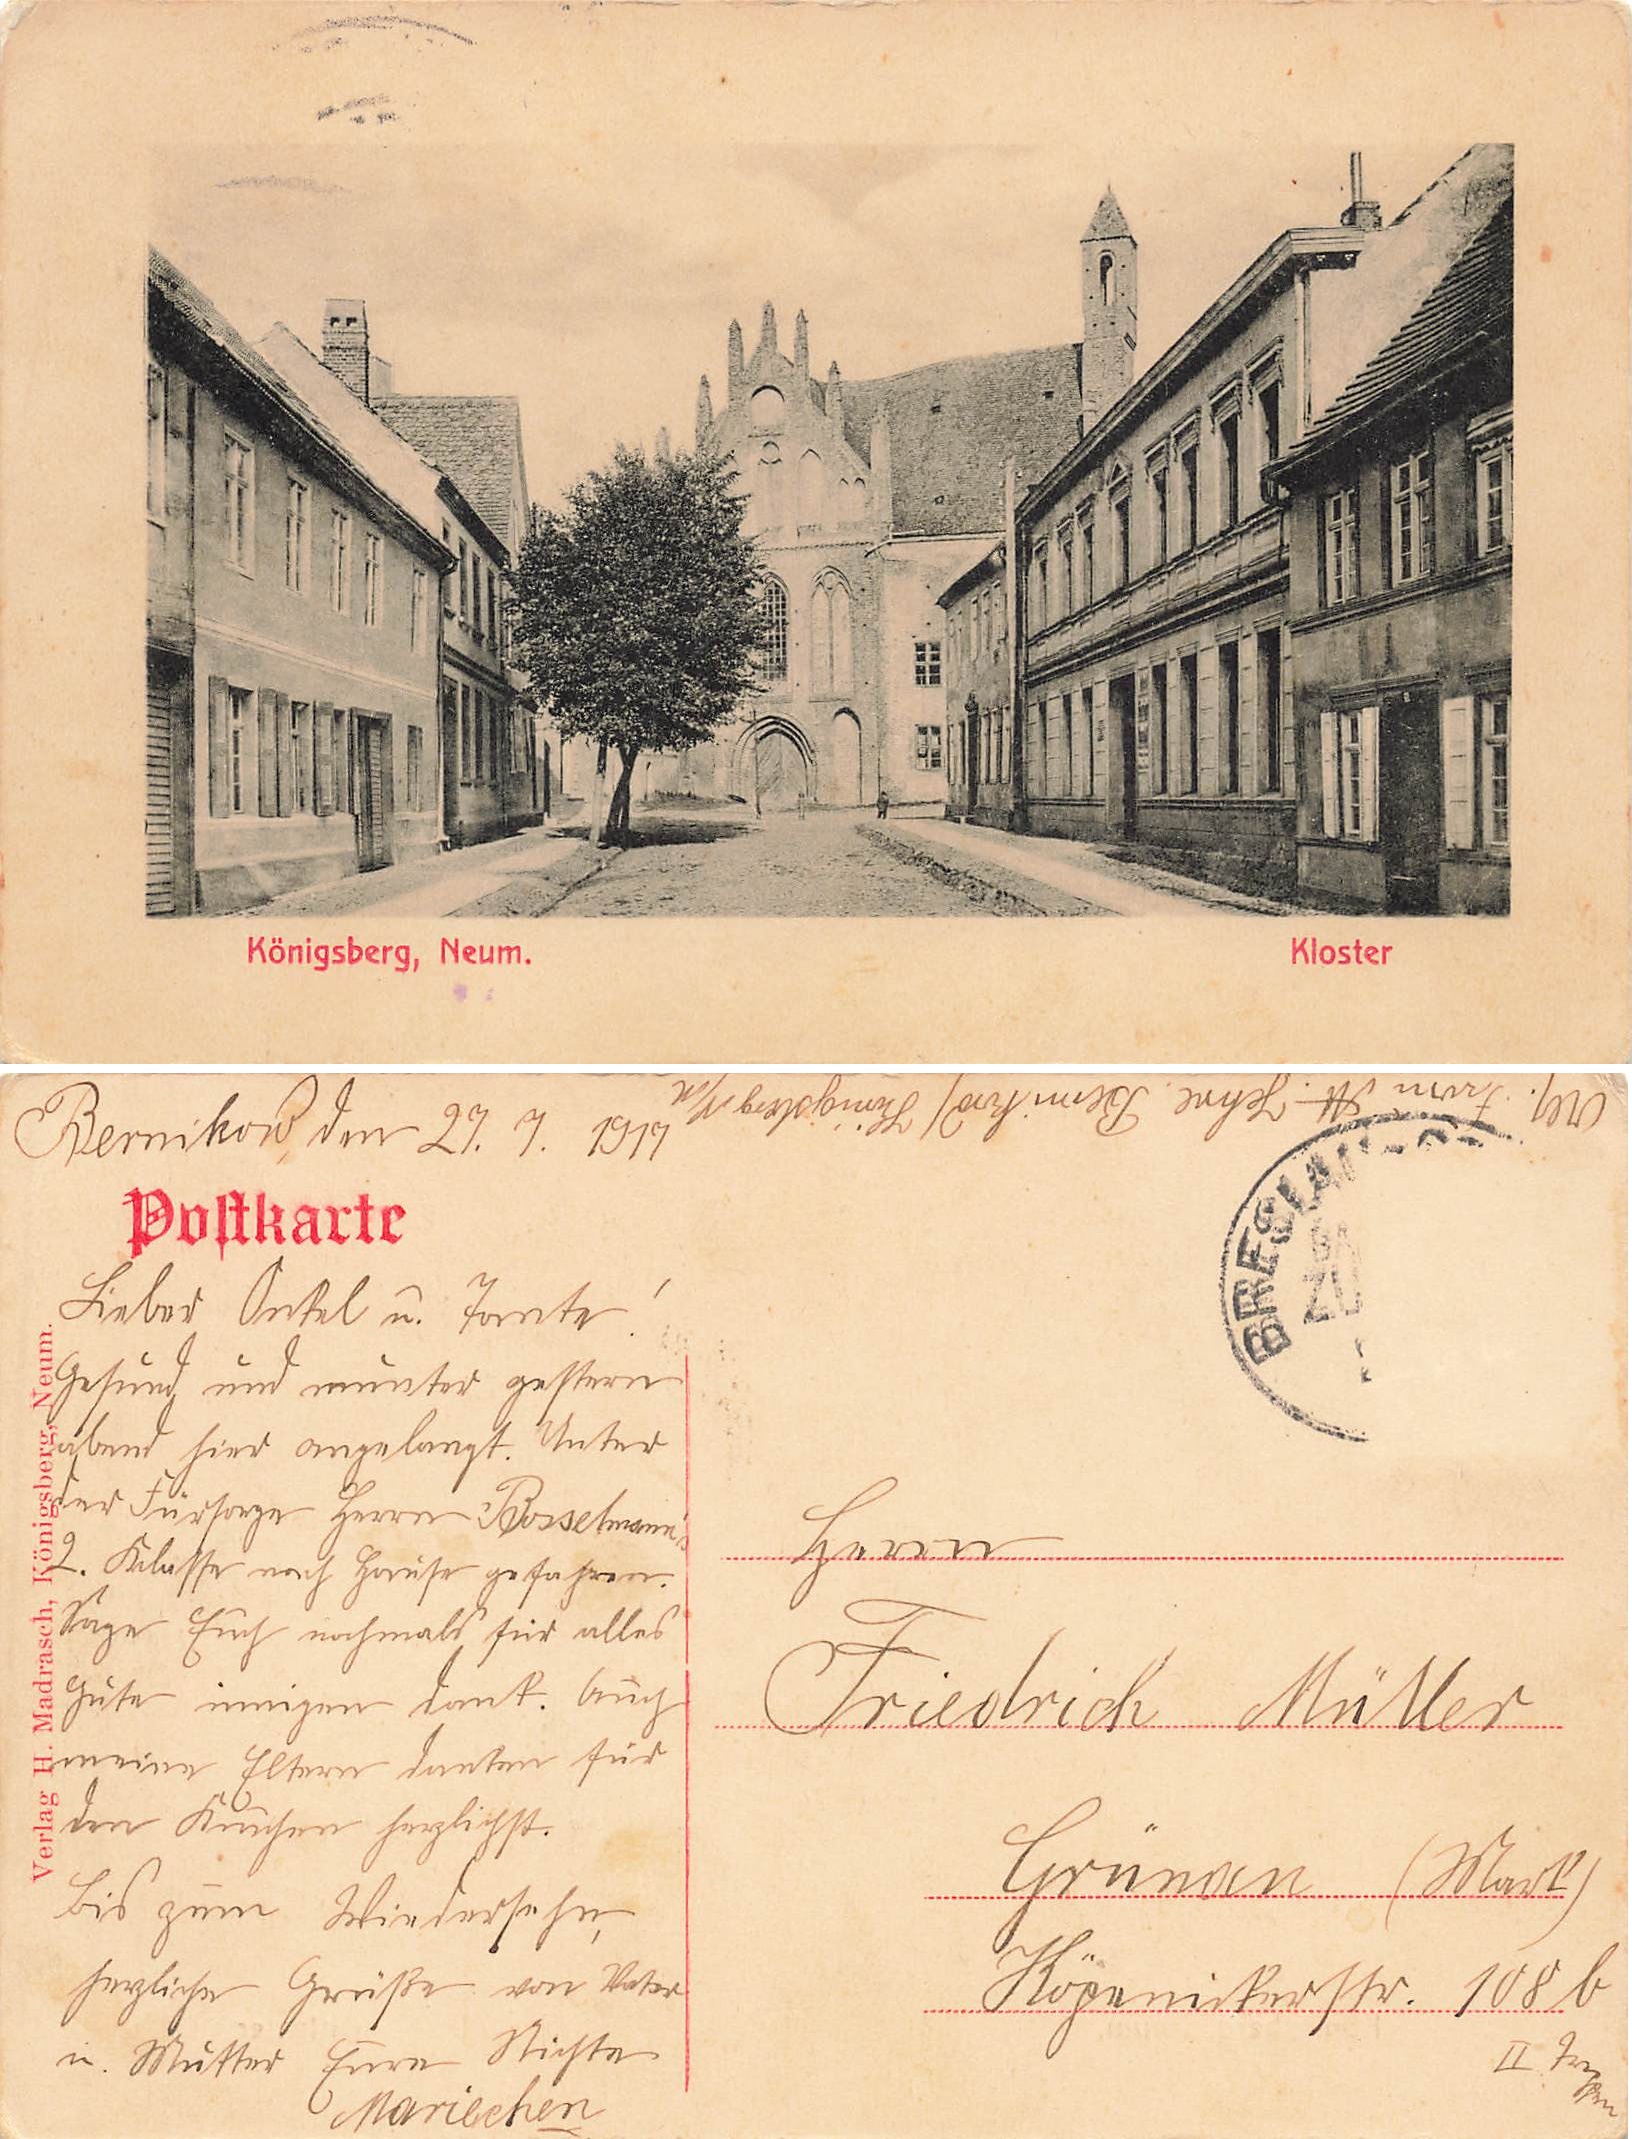 Königsberg, Neum.
Kloster
Bernikow, den 27. 7. 1917
Postkarte
Lieber Onkel u. Tante!
Gesund und munter gestern
abend hier angelangt. Unter
der Fürsorge Herrn Bosselmann's
2. Klasse nach Hause gefahren.
Sage Euch nochmals für alles
Gute innigen Dank. Auch
meine Eltern danken für
den Kuchen herzlichst.
Bis zum Wiedersehn,
herzliche Grüße von Vater
u. Mutter Eure Nichte
Mariechen
Verlag H. Madrasch, Königsberg, Neum.
Bernikow / Königsberg N/M
BRESLAU
ZU
Herrn
Friedrich Müller
Grünau (Mark)
Köpenickerstr. 108 b
II Treppen